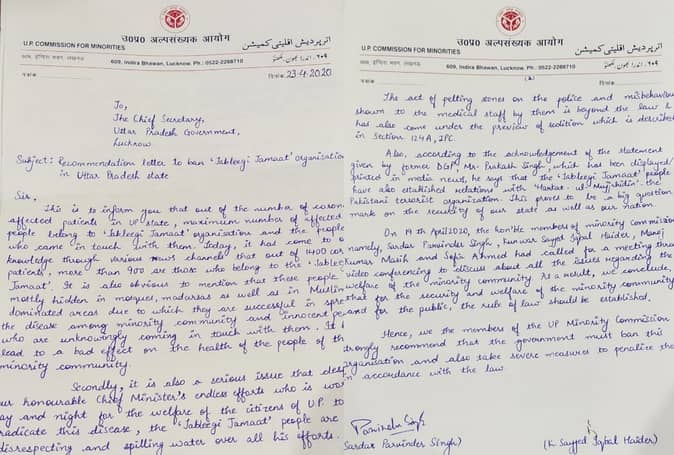 उ०प्र० अल्पसंख्यक आयोग
U.P. COMMISSION FOR MINORITIES
609, Indira Bhawan, Lucknow. Ph.: 0522-2288710
23-4-2020
To,
The Chief Secretary,
Uttar Pradesh Government,
Lucknow.
Subject: Recommendation letter to ban 'Tableegi Jamaat' organisation
in Uttar Pradesh state
Sir,
This is to inform you that out of the number of coron
affected patients in UP state, maximum number of affected
people belong to 'Tableegi Jamaat' organisation and the people
who came in touch with them. Today, it has come to o
knowledge through various news channels that out of 1400 cor
patients, more than 900 are those who belong to the 'Tableeg
Jamaat'. It is also obvious to mention that these people
mostly hidden in mosques, madarsas as well as in Muslim
dominated areas due to which they are successful in spre
the disease among minority community and innocent pe
who are unknowingly coming in touch with them. It
lead to a bad effect on the health of the people of th
minority community.
Secondly, it is also a serious issue that des
our honourable Chief Minister's endless efforts who is wor
ay and night for the welfare of the citizens of U.P. to
radicate this disease, the 'Tableegi Jamaat' people are
disrespecting and spilling water over all his efforts.
उ०प्र० अल्पसंख्यक आयोग
اتر پردیش اقلیتی کمیشن
U.P. COMMISSION FOR MINORITIES
609, Indira Bhawan, Lucknow. Ph.: 0522-2288710
(2)
The act of pelting stones on the police and misbehaviou
shown to the medical staff by them is beyond the law &
has also come under the preview of sedition which is described
in Section 124A, IPC.
Also, according to the acknowledgement of the statement
given by former DGP, Mr. Prakash Singh, which has been displayed/
printed in media news, he says that the 'Tableegi Jamaat' people
have also established relations with 'Harkat-ul-Mujahidin', the
Pakistani terrorist organization. This proves to be a big question
mark on the security of our state as well as our nation.
On 19th April 2020, the hon'ble members of minority commission
namely, Sardar Parvinder Singh, Kunwar Sayyed Iqbal Haider, Manoj
Kumar Masih and Sofia Ahmed had called for a meeting throu
video conferencing to discuss about all the issues regarding the
welfare of the minority community. As a result, we conclude,
that for the security and welfare of the minority community
and for the public, the rule of law should be established.
Hence, we the members of the UP Minority Commission
strongly recommend that the government must ban this
organisation and also take severe measures to penalize the
in accordance with the law.
(Sardar Parvinder Singh)
(K. Sayyed Iqbal Haider)